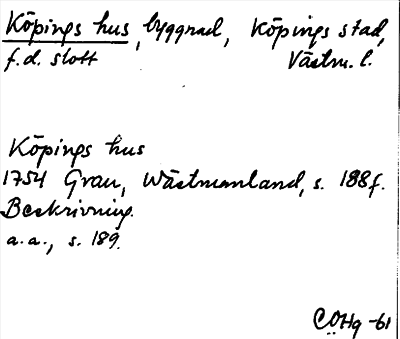 Köpings hus, byggnad, Köpings stad,
f.d. slott Västm. l.
Köpings hus
1754 Grau, Wästmanland, s. 188f.
Beskrivning.
a.a., s. 189.
COHq -61